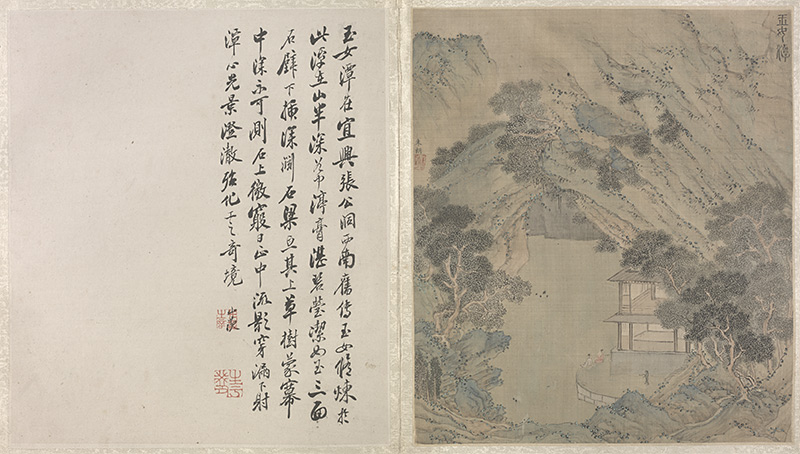 玉女潭在宜興張公洞西南舊傳玉女脩煉於
此潭在山半深谷中渟膏湛碧瑩潔如玉三面
石壁下插深淵石梁亙其上草樹蒙冪
中深不可測石上微竅日正中流影穿漏下射
潭心光景澄澈化工之奇境
玉女潭